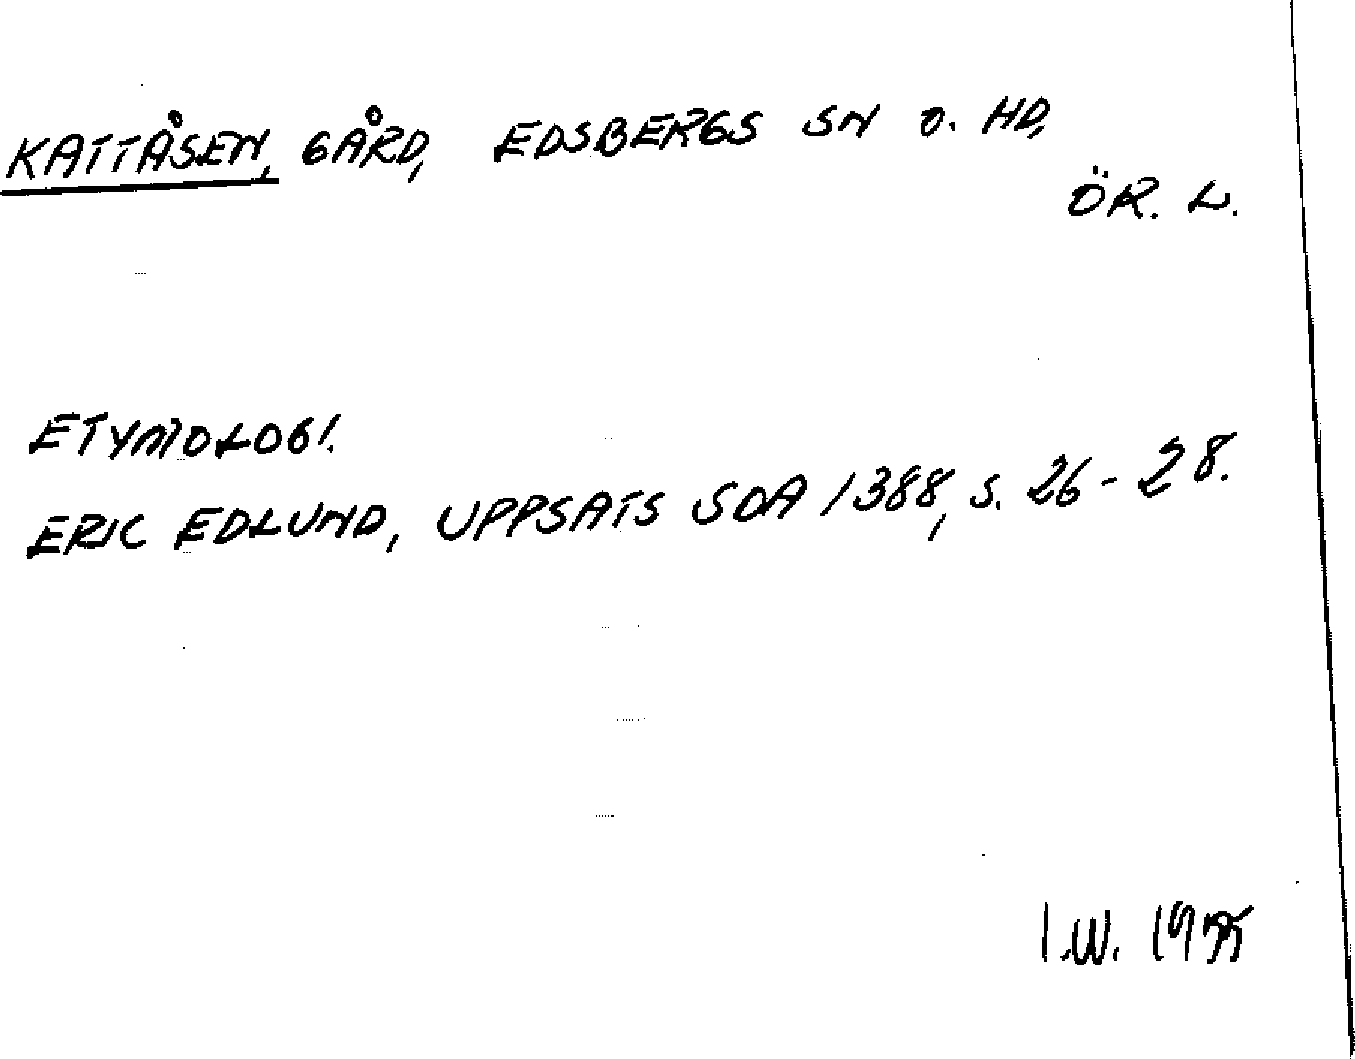 KATTÅSEN, GÅRD, EDSBERGS SN O. HD,
ÖR. L.
ETYMOLOGI.
ERIC EDLUND, UPPSATS SOA 1388, S. 26-28.
I.W.